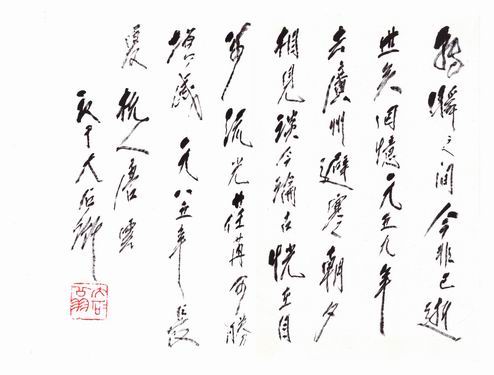 轉瞬之间今非已逝
世矣回憶一九五九年
去廣州避寒朝夕
相見談今論古恍在目
前流光荏苒可勝
增感一九八五年
杭人唐雲
于大石齋
大石翁